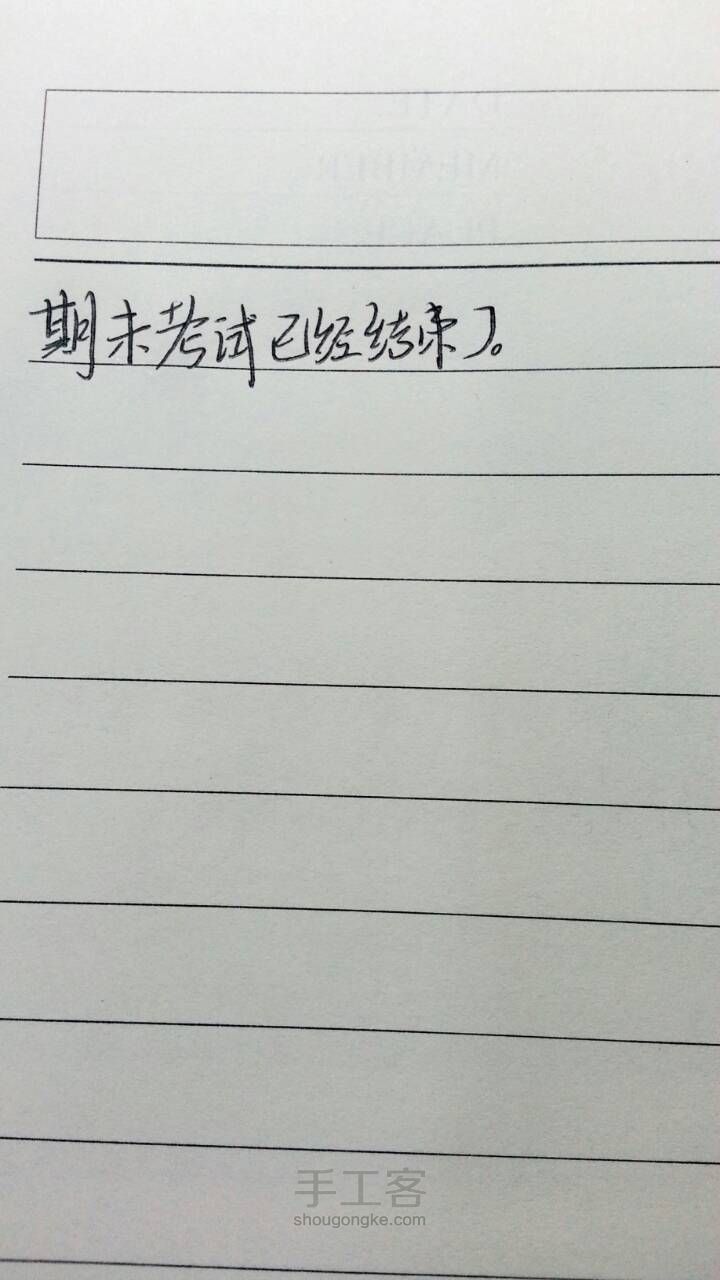 期末考试已经结束了。
手工客
shougongke.com